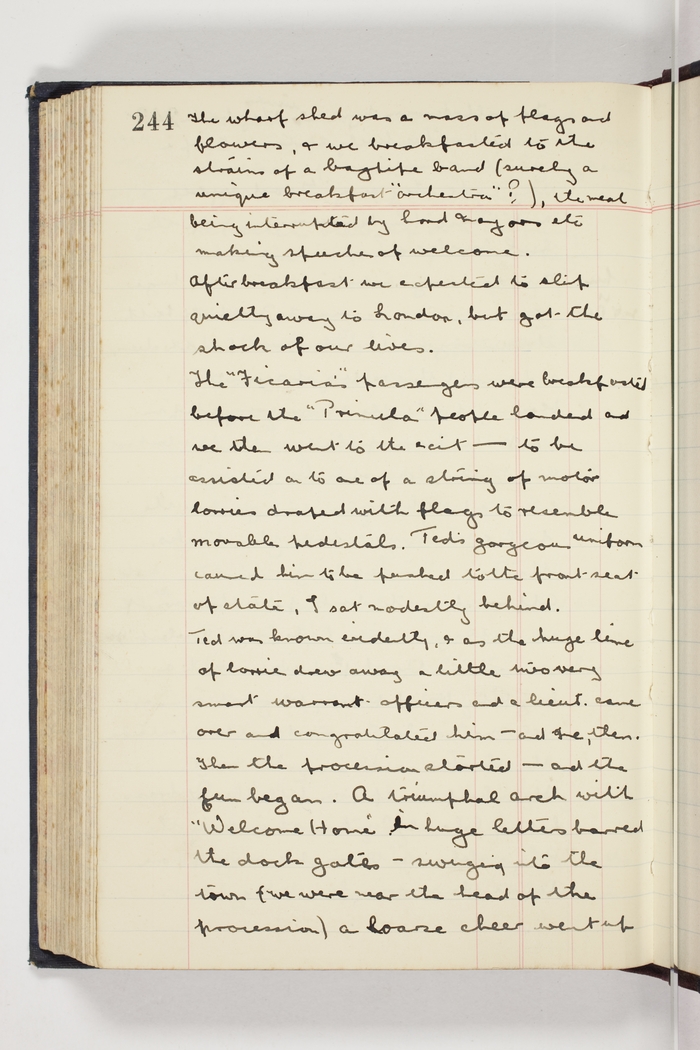 244
The wharf shed was a mass of flags and
flowers, & we breakfasted to the
strains of a bagpipe band (surely a
unique breakfast "orchestra"?), the meal
being interrupted by Lord Mayors etc
making speeches of welcome.
After breakfast we expected to slip
quietly away to London, but got the
shock of our lives.
The "Ficaria's" passengers were breakfasted
before the "Primula" people landed and
we then went to the exit — to be
assisted on to one of a string of motor
lorries draped with flags to resemble
movable pedestals. Ted's gorgeous uniform
caused him to be pushed to the front seat
of state, I sat modestly behind.
Ted was known evidently, & as the huge line
of lorries drew away a little two very
smart warrant officers and a lieut. came
over and congratulated him — and me, then.
Then the procession started — and the
fun began. A triumphal arch with
"Welcome Home" in huge letters barred
the dock gates – swinging into the
town (we were near the head of the
procession) a hoarse cheer went up